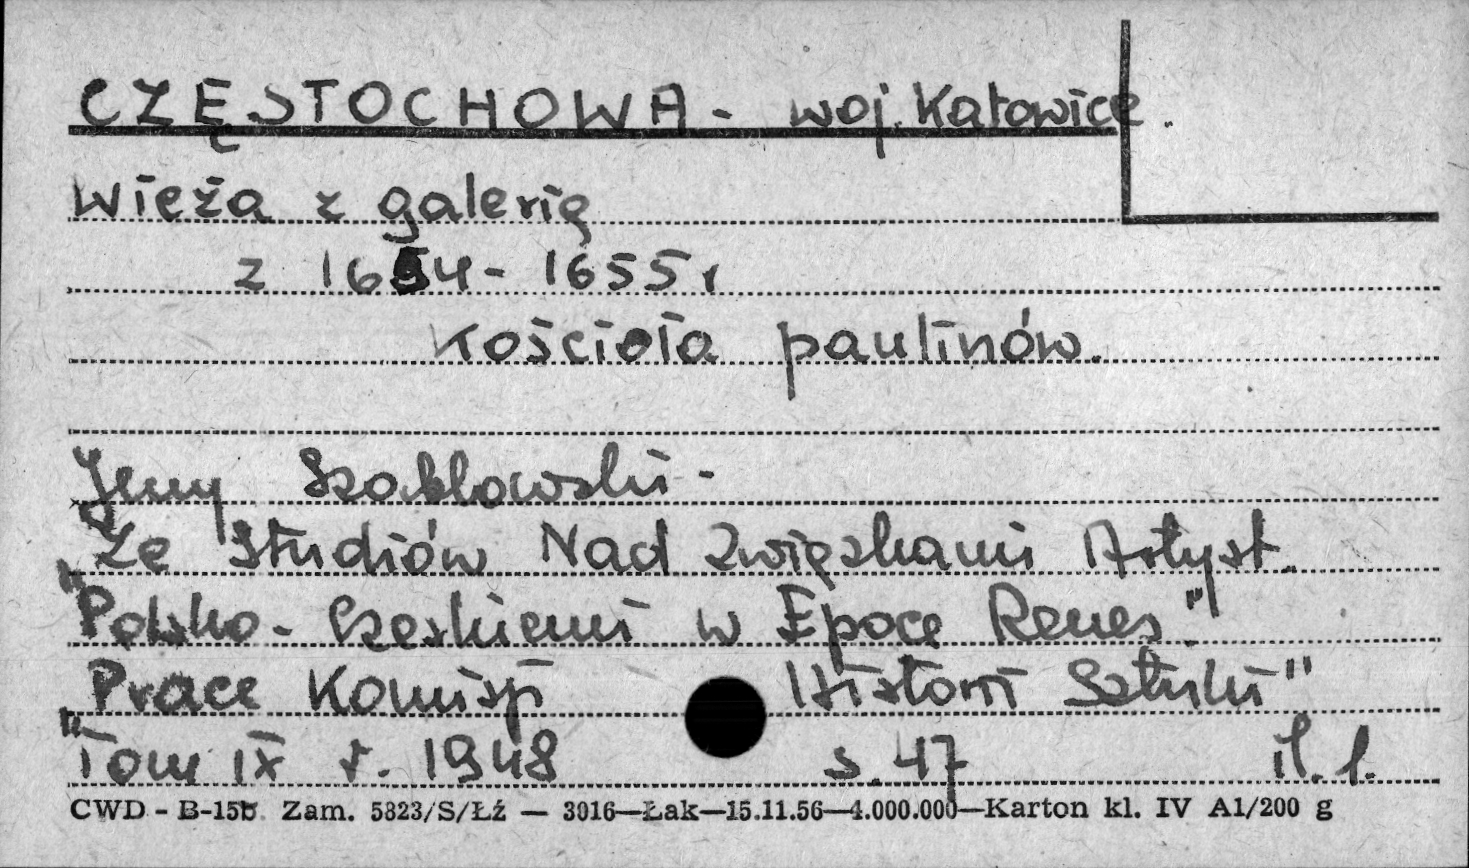 CZĘSTOCHOWA - woj. Katowice.
Wieża z galerią
z 1654 - 1655 r
Kościoła paulinów.
Jerzy Szablowski -
"Ze Studiów Nad Związkami Artyst.
Polsko - Czeskiemi w Epoce Renes."
"Prace Komisji Historii Sztuki"
Tom IX r. 1948 s. 47 il. 1.
CWD - B-15b Zam. 5823/S/Łź — 3916—Łak—15.11.56—4.000.000—Karton kl. IV A1/200 g